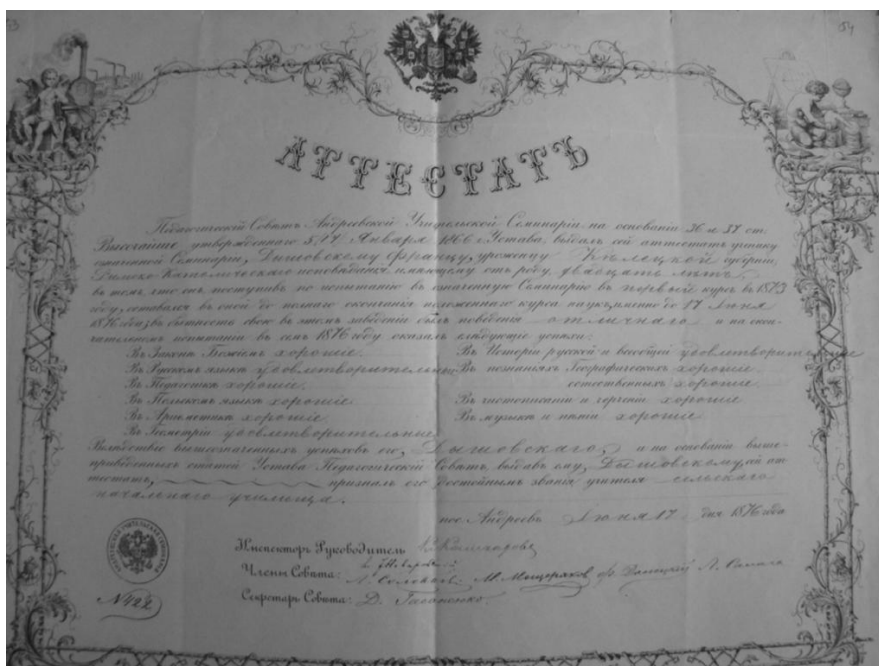 54
АТТЕСТАТЪ
Педагогическій Совѣтъ Андреевской Учительской Семинаріи на основаніи 36 и 37 ст.
Высочайше утвержденнаго 5/17 Января 1866 г. Устава, выдалъ сей аттестатъ ученику
означенной Семинаріи, Дышовскому Францу, уроженцу Кѣлецкой губерніи,
Римско-Католическаго исповѣданія имѣющему отъ роду двадцать лѣтъ
въ томъ что онъ, поступивъ по испытанію въ означенную Семинарію въ первый курсъ въ 1873
году, оставался въ оной до полнаго окончанія положеннаго курса наукъ, именно до 17 Іюня
1876 года; въ бытность свою въ этомъ заведеніи былъ поведенія отличнаго и на окон-
чательномъ испытаніи въ семъ 1876 году оказалъ слѣдующіе успѣхи:
Въ Законѣ Божіемъ хорошіе. Въ Исторіи русской и всеобщей удовлетворительные
Въ Русскомъ языкѣ удовлетворительные Въ познаніяхъ Географическихъ хорошіе
Въ Педагогикѣ хорошіе. естественныхъ хорошіе
Въ Польскомъ языкѣ хорошіе Въ чистописаніи и черченіи хорошіе
Въ Ариѳметикѣ хорошіе Въ музыкѣ и пѣніи хорошіе
Въ Геометріи удовлетворительные
Вслѣдствіе вышеозначенныхъ успѣховъ его, Дышовскаго, и на основаніи выше-
приведенныхъ статей Устава Педагогическій Совѣтъ, выдавъ ему, Дышовскому, сей ат-
тестатъ, призналъ его достойнымъ званія учителя сельскаго
начальнаго училища.
пос. Андреевъ Іюня 17 дня 1876 года
Инспекторъ Руководитель
Члены Совѣта: М. Мещеряковъ
Секретарь Совѣта: Д.
№ 422